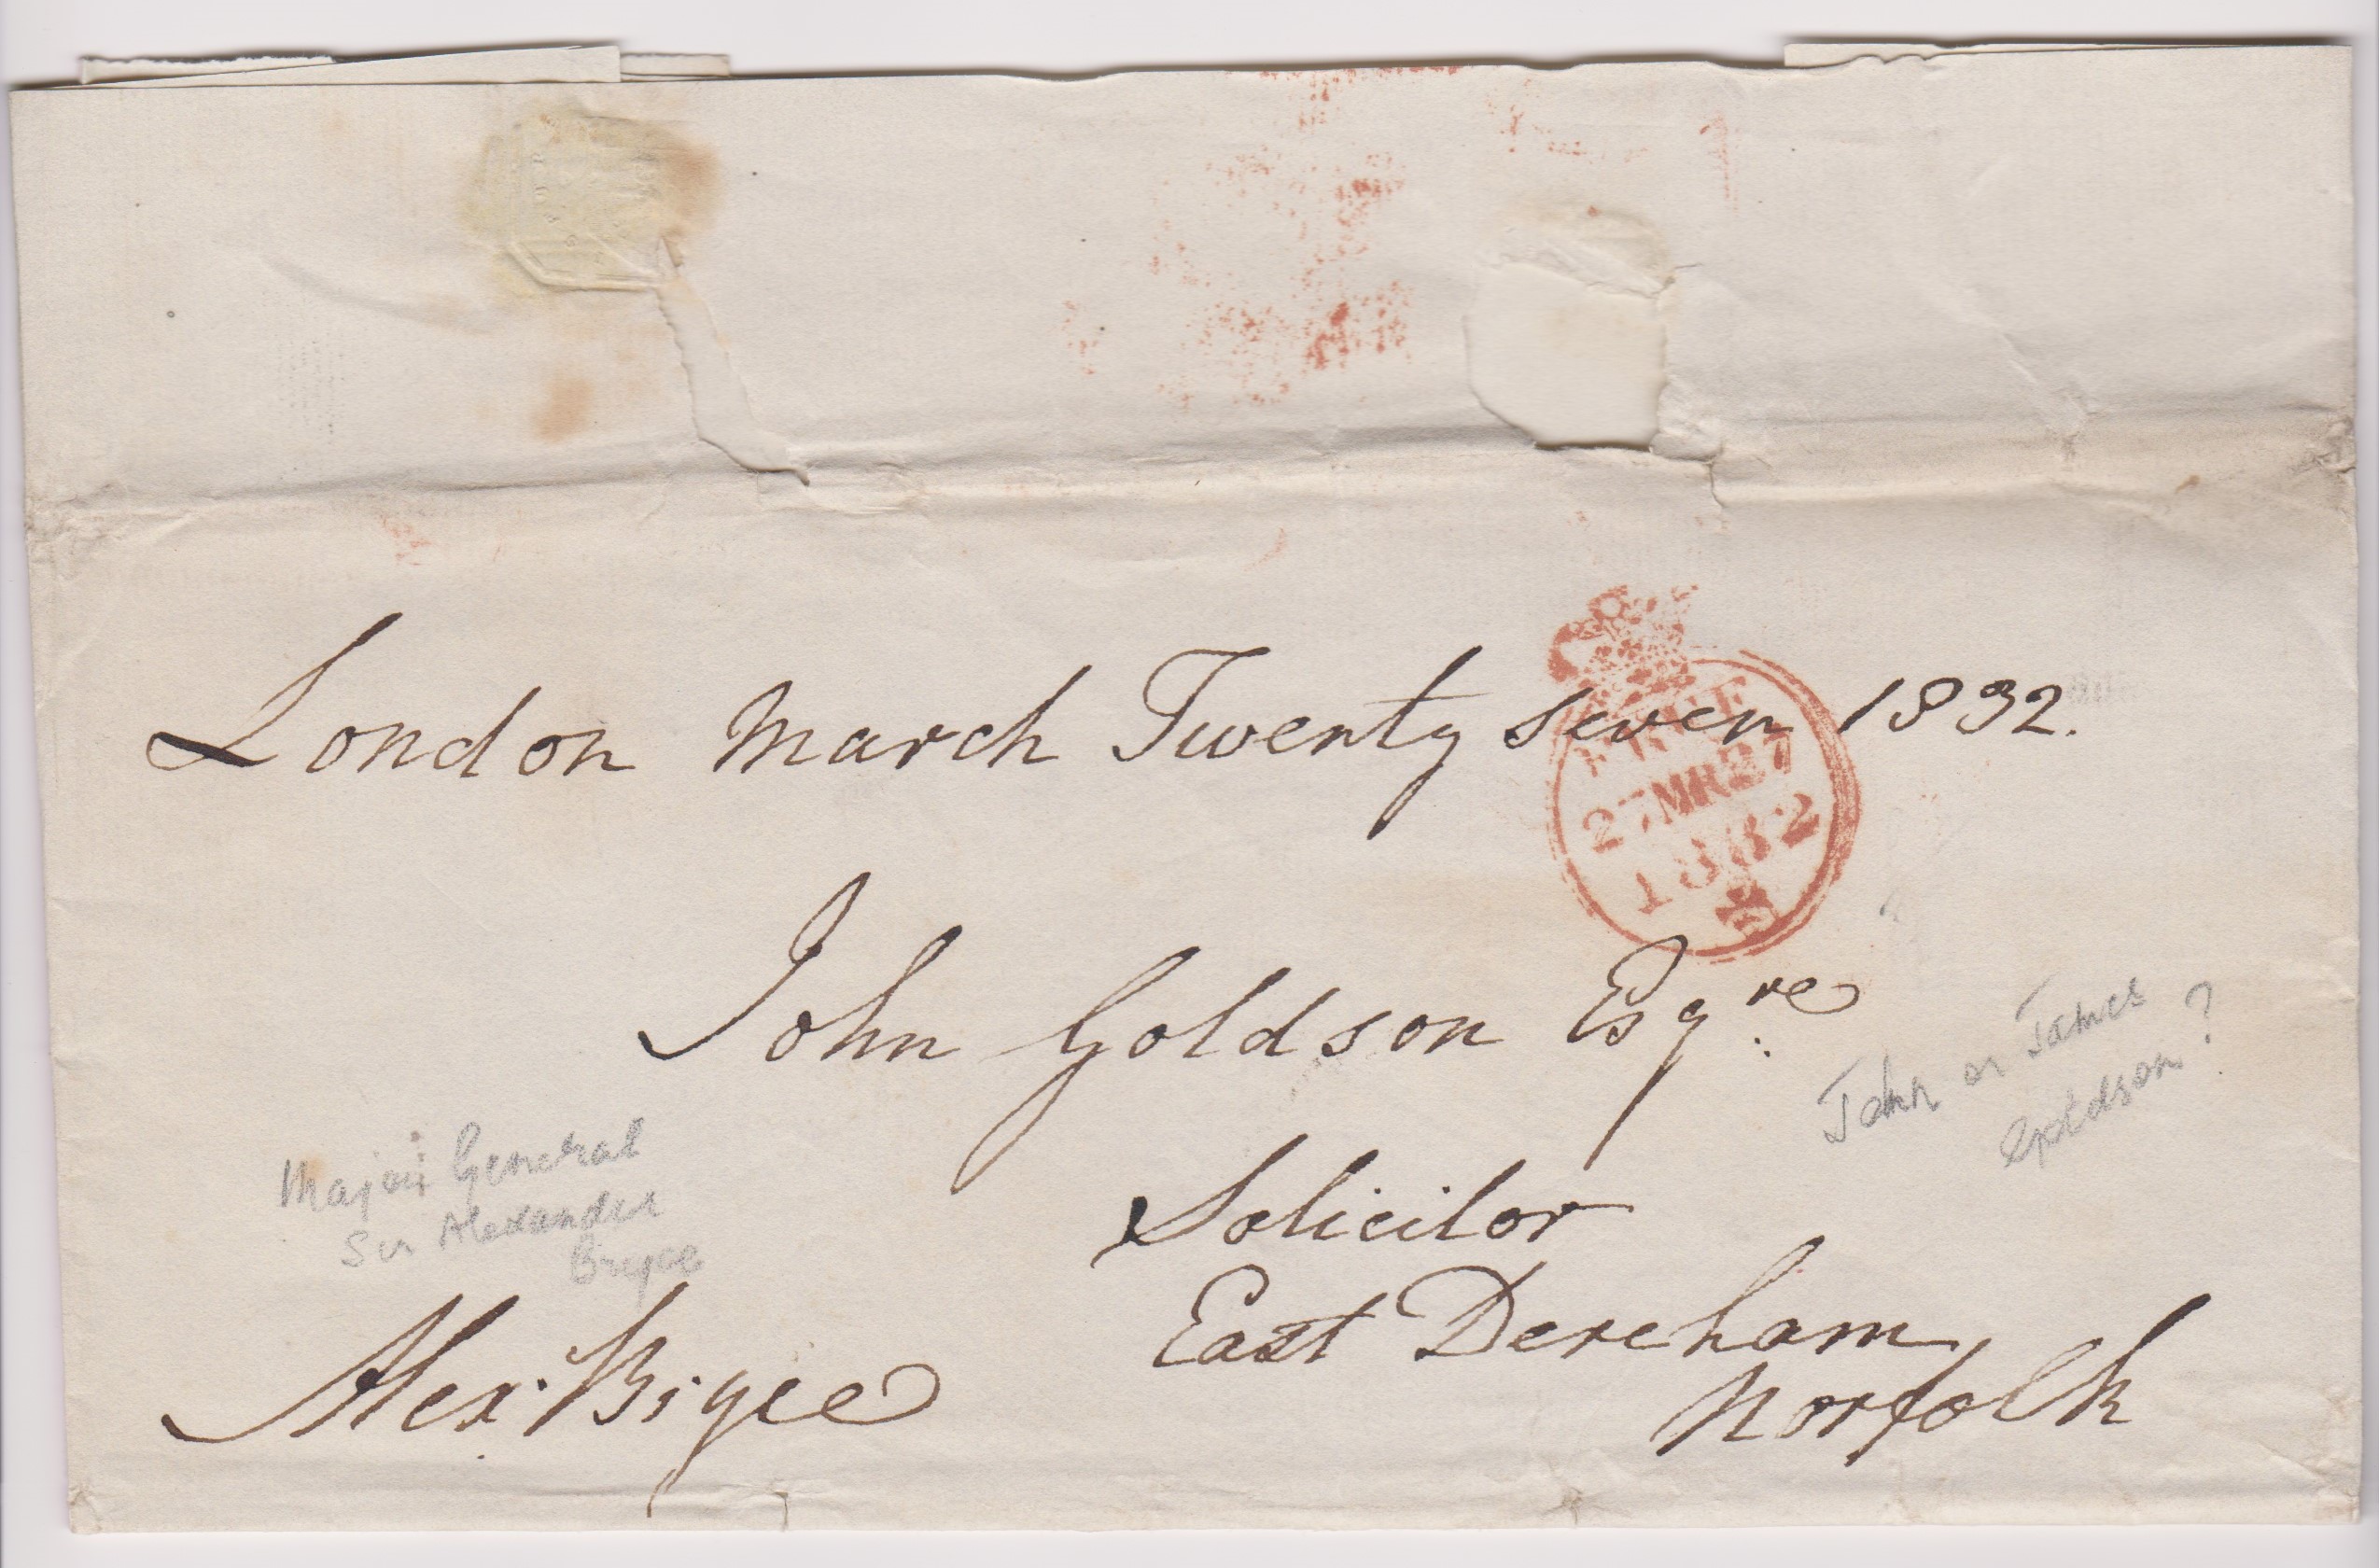 London March Twenty seven 1832.
FREE
27MR27
1832
John Goldson Esqre
John or James
Goldson?
Solicitor
Major General
Sir Alexander
Bryce
East Dereham
Norfolk
Alex. Bryce